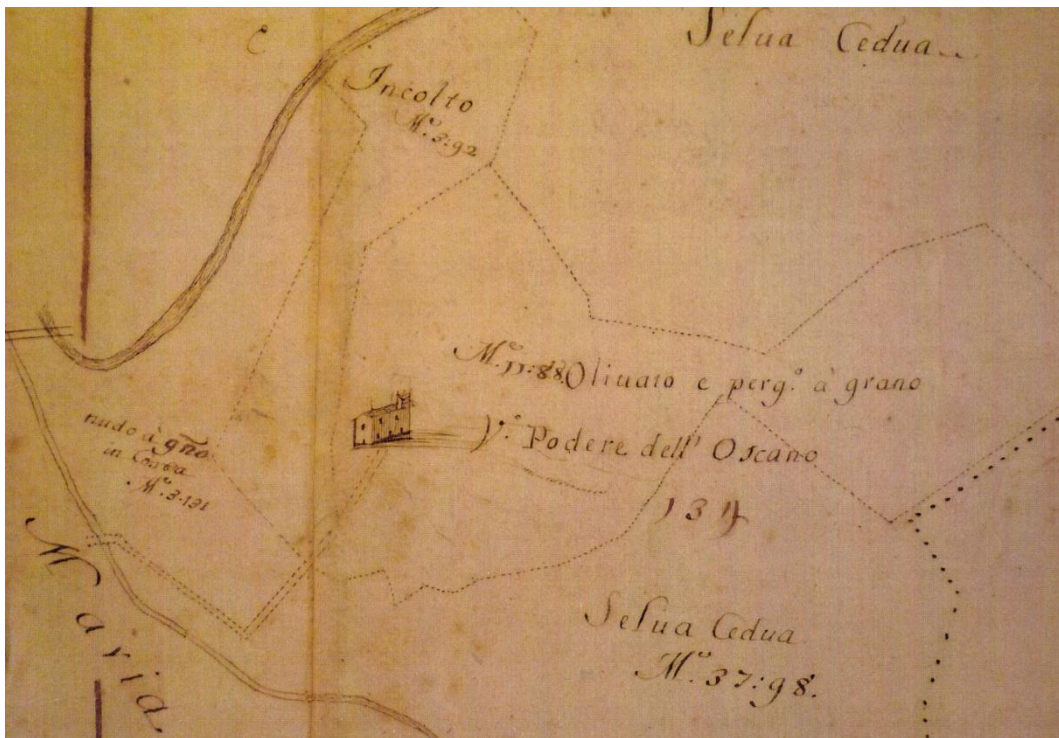 Selua Cedua
Incolto
M.ª 3:92
M.ª 11:88. Oliuato e perg.º à grano
V.º Podere dell' Oscano
134
nudo à gño
in
M.ª 3.131
Maria
Selua Cedua
M.ª 37:98.